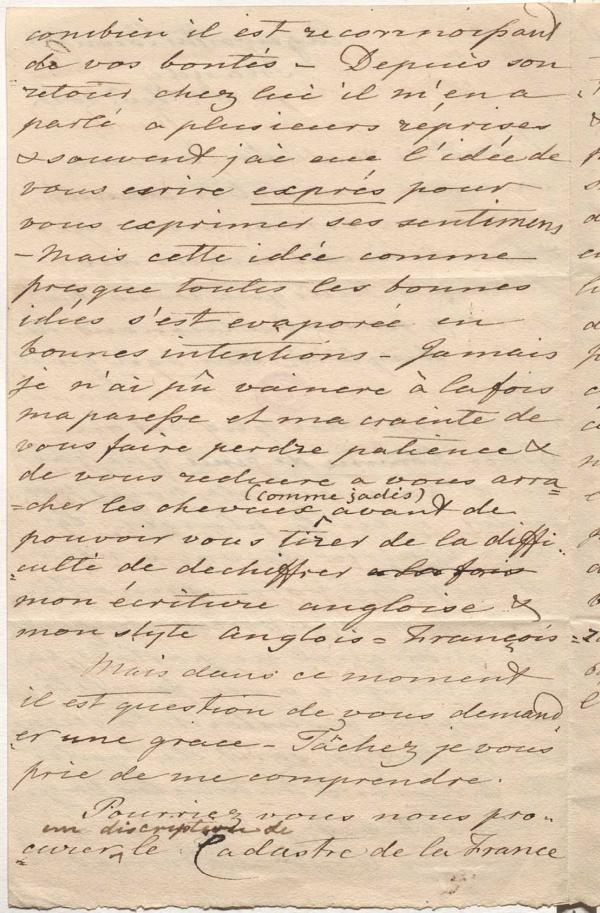 combien il est reconnoissant
de vos bontés – Depuis son
retour chez lui il m'en a
parlé a plusieurs réprises
& souvent j'ai eue l'idée de
vous ecrire exprés pour
vous exprimer ses sentimens
– Mais cette idée comme
presque toutes les bonnes
idiés s'est evaporée en
bonnes intentions – Jamais
je n'ai pû vaincre à la fois
ma paresse et ma crainte de
vous faire perdre patience &
de vous reduire a vous arra=
(comme jadis)
=cher les cheveux avant de
pouvoir vous tirer de la diffi=
=culté de dechiffrer a la fois
mon écriture angloise &
mon style Anglois = François
Mais dans ce moment
il est question de vous demand
er une grace – Tâchez je vous
prie de me comprendre.
Pourriez vous nous pro=
un discription de
curer le Cadastre de la France